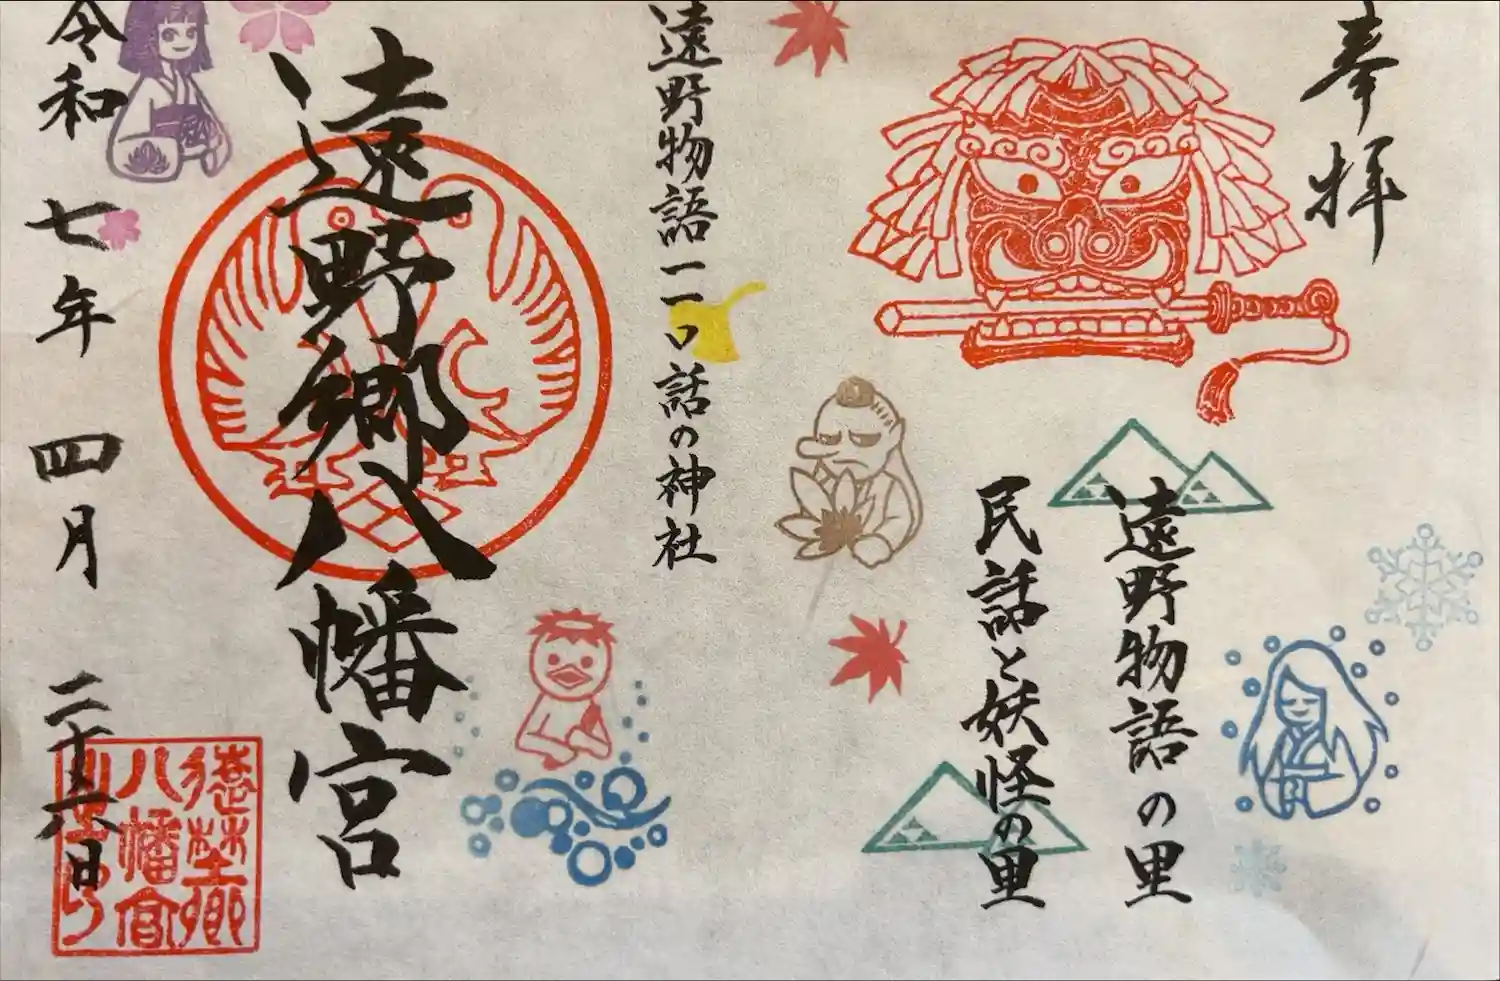 奉拝
遠野物語の里
民話と妖怪の里
遠野物語一一〇話の神社
遠野郷八幡宮
令和七年四月二十六日
遠埜郷
八幡宮